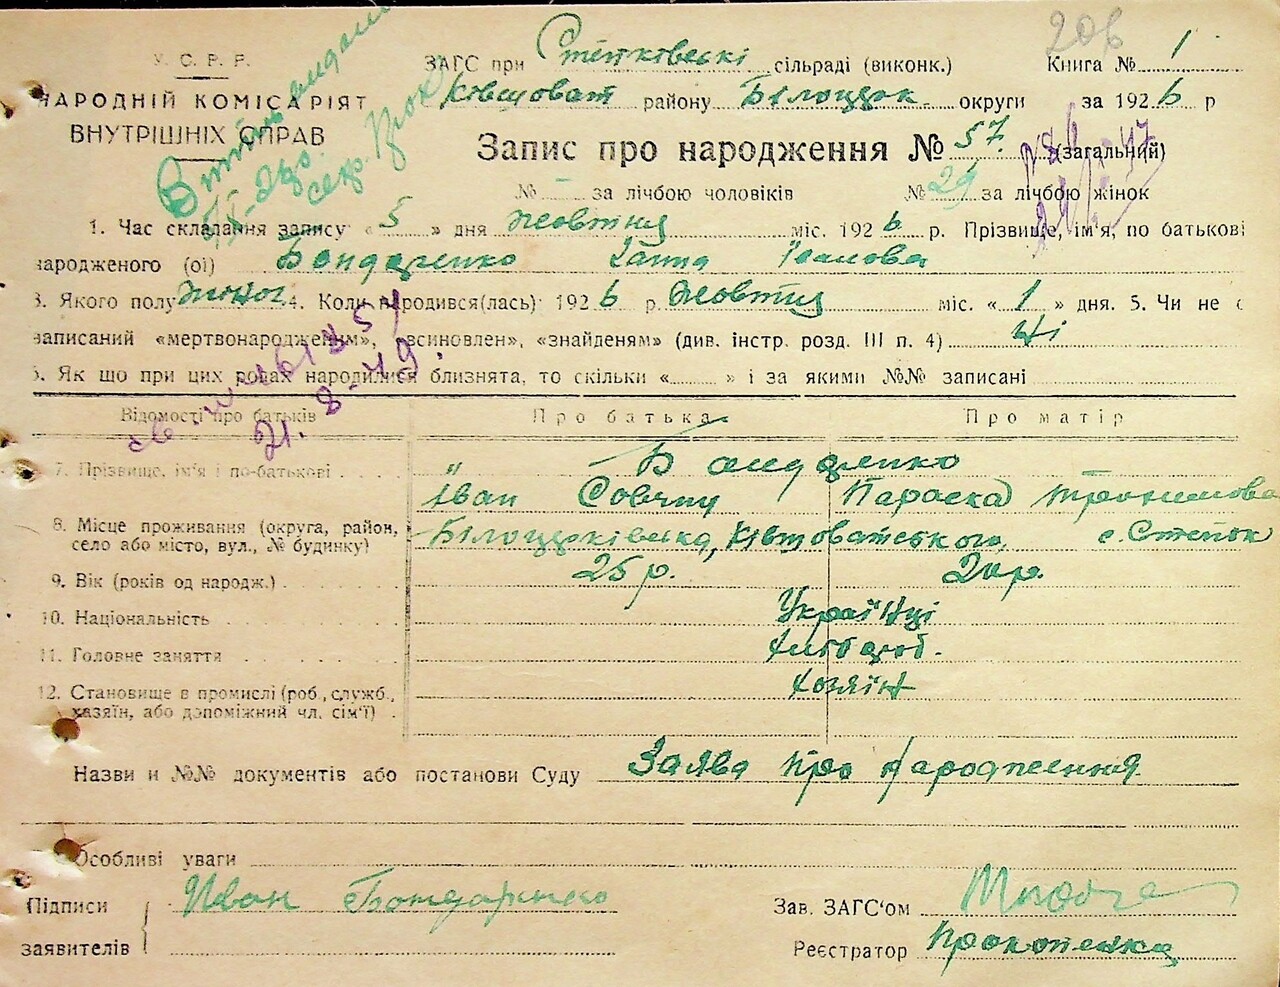 У. С. Р. Р.
НАРОДНІЙ КОМІСАРІЯТ
ВНУТРІШНІХ СПРАВ
206
ЗАГС при Степківескі сільраді (виконк.) Книга № 1
Ківшоват району Білоцерк. округи за 1926 р
Запис про народження № 57. (загальний)
№ – за лічбою чоловіків № 29 за лічбою жінок
1. Час складання запису: «5» дня жовтня міс. 1926 р. Прізвище, ім'я, по батькові
народженого (ої) Бондаренко Ганна Іванова
3. Якого полу жіноч. 4. Коли народився(лась) 1926 р. жовтня міс. «1» дня. 5. Чи не є
записаний «мертвонародженим», «всиновлен», «знайденям» (див. інстр. розд. III п. 4) Ні
6. Як що при цих родах народилися близнята, то скільки «......» і за якими №№ записані
21. 8-49.
Відомості про батьків Про батька Про матір
7. Прізвище, ім'я і по-батькові . . . . „ Бондаренко
Іван Параска Трохимова
8. Місце проживання (округа, район, село або місто, вул., № будинку) Білоцерківська, Ківшоватського, с. Степок
9. Вік (років од народж.) . 25 р. 20 р.
10. Національність Українці
11. Головне заняття хлібороб.
12. Становище в промислі (роб., служб., хазяїн, або допоміжний чл. сім'ї) . хозяїн
Назви и №№ документів або постанови Суду Заява про народження
Особливі уваги
Підписи заявителів Иван Бондаренко
Зав. ЗАГС'ом
Реєстратор Прокопенко